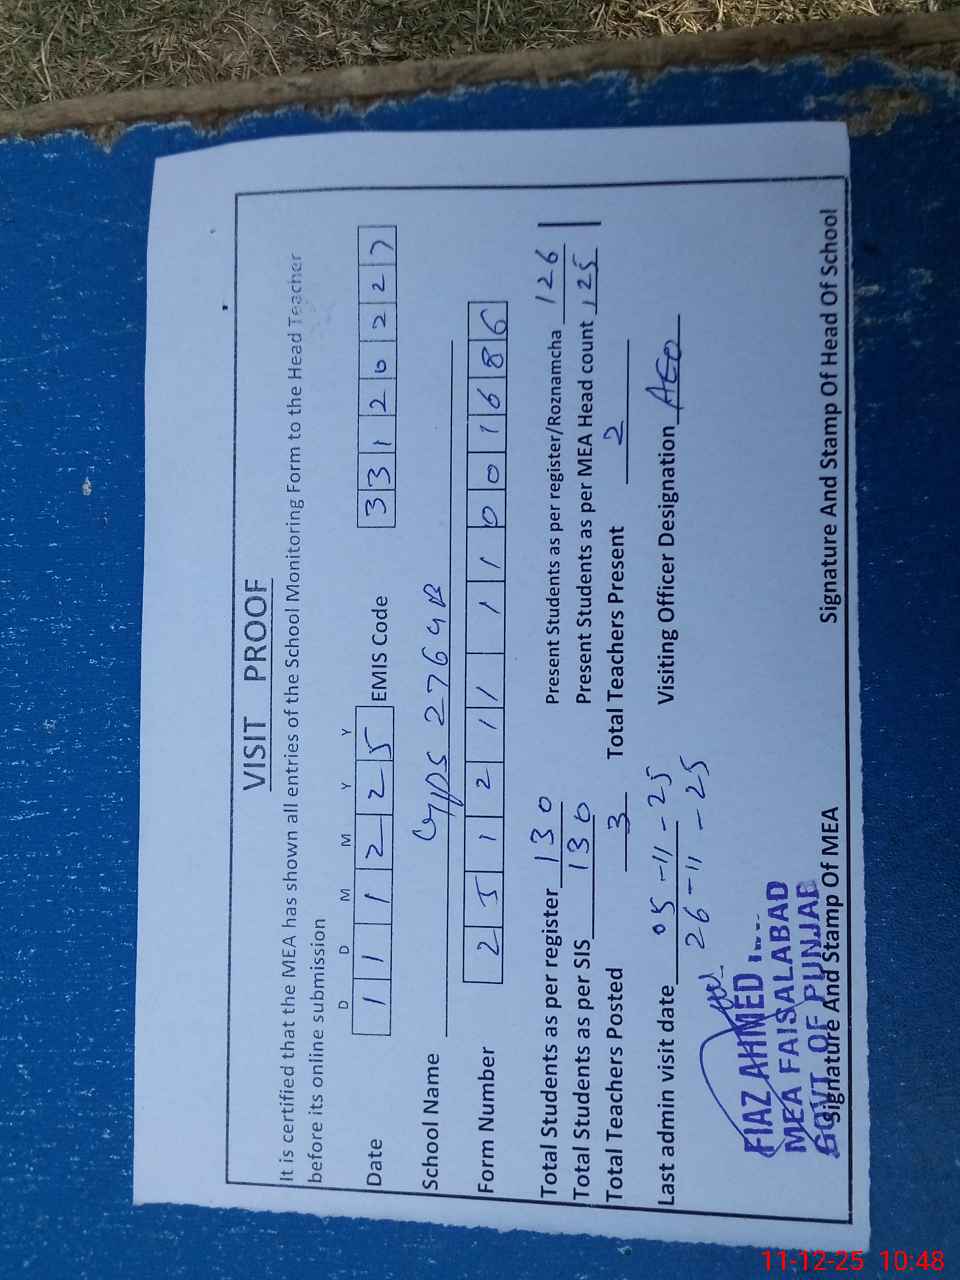 VISIT PROOF
It is certified that the MEA has shown all entries of the School Monitoring Form to the Head Teacher
before its online submission
D D M M Y Y
Date 1 1 1 2 2 5 EMIS Code 3 3 1 2 0 2 2 7
School Name GPS 276 GB
Form Number 2 5 1 2 1 1 1 1 0 0 1 6 8 6
Total Students as per register 130 Present Students as per register/Roznamcha 126
Total Students as per SIS 130 Present Students as per MEA Head count 125
Total Teachers Posted 3 Total Teachers Present 2
Last admin visit date 05-11-25 Visiting Officer Designation AEO
26-11-25
FIAZ AHMED
MEA FAISALABAD
GOVT. OF PUNJAB
Signature And Stamp Of MEA Signature And Stamp Of Head Of School
11-12-25 10:48